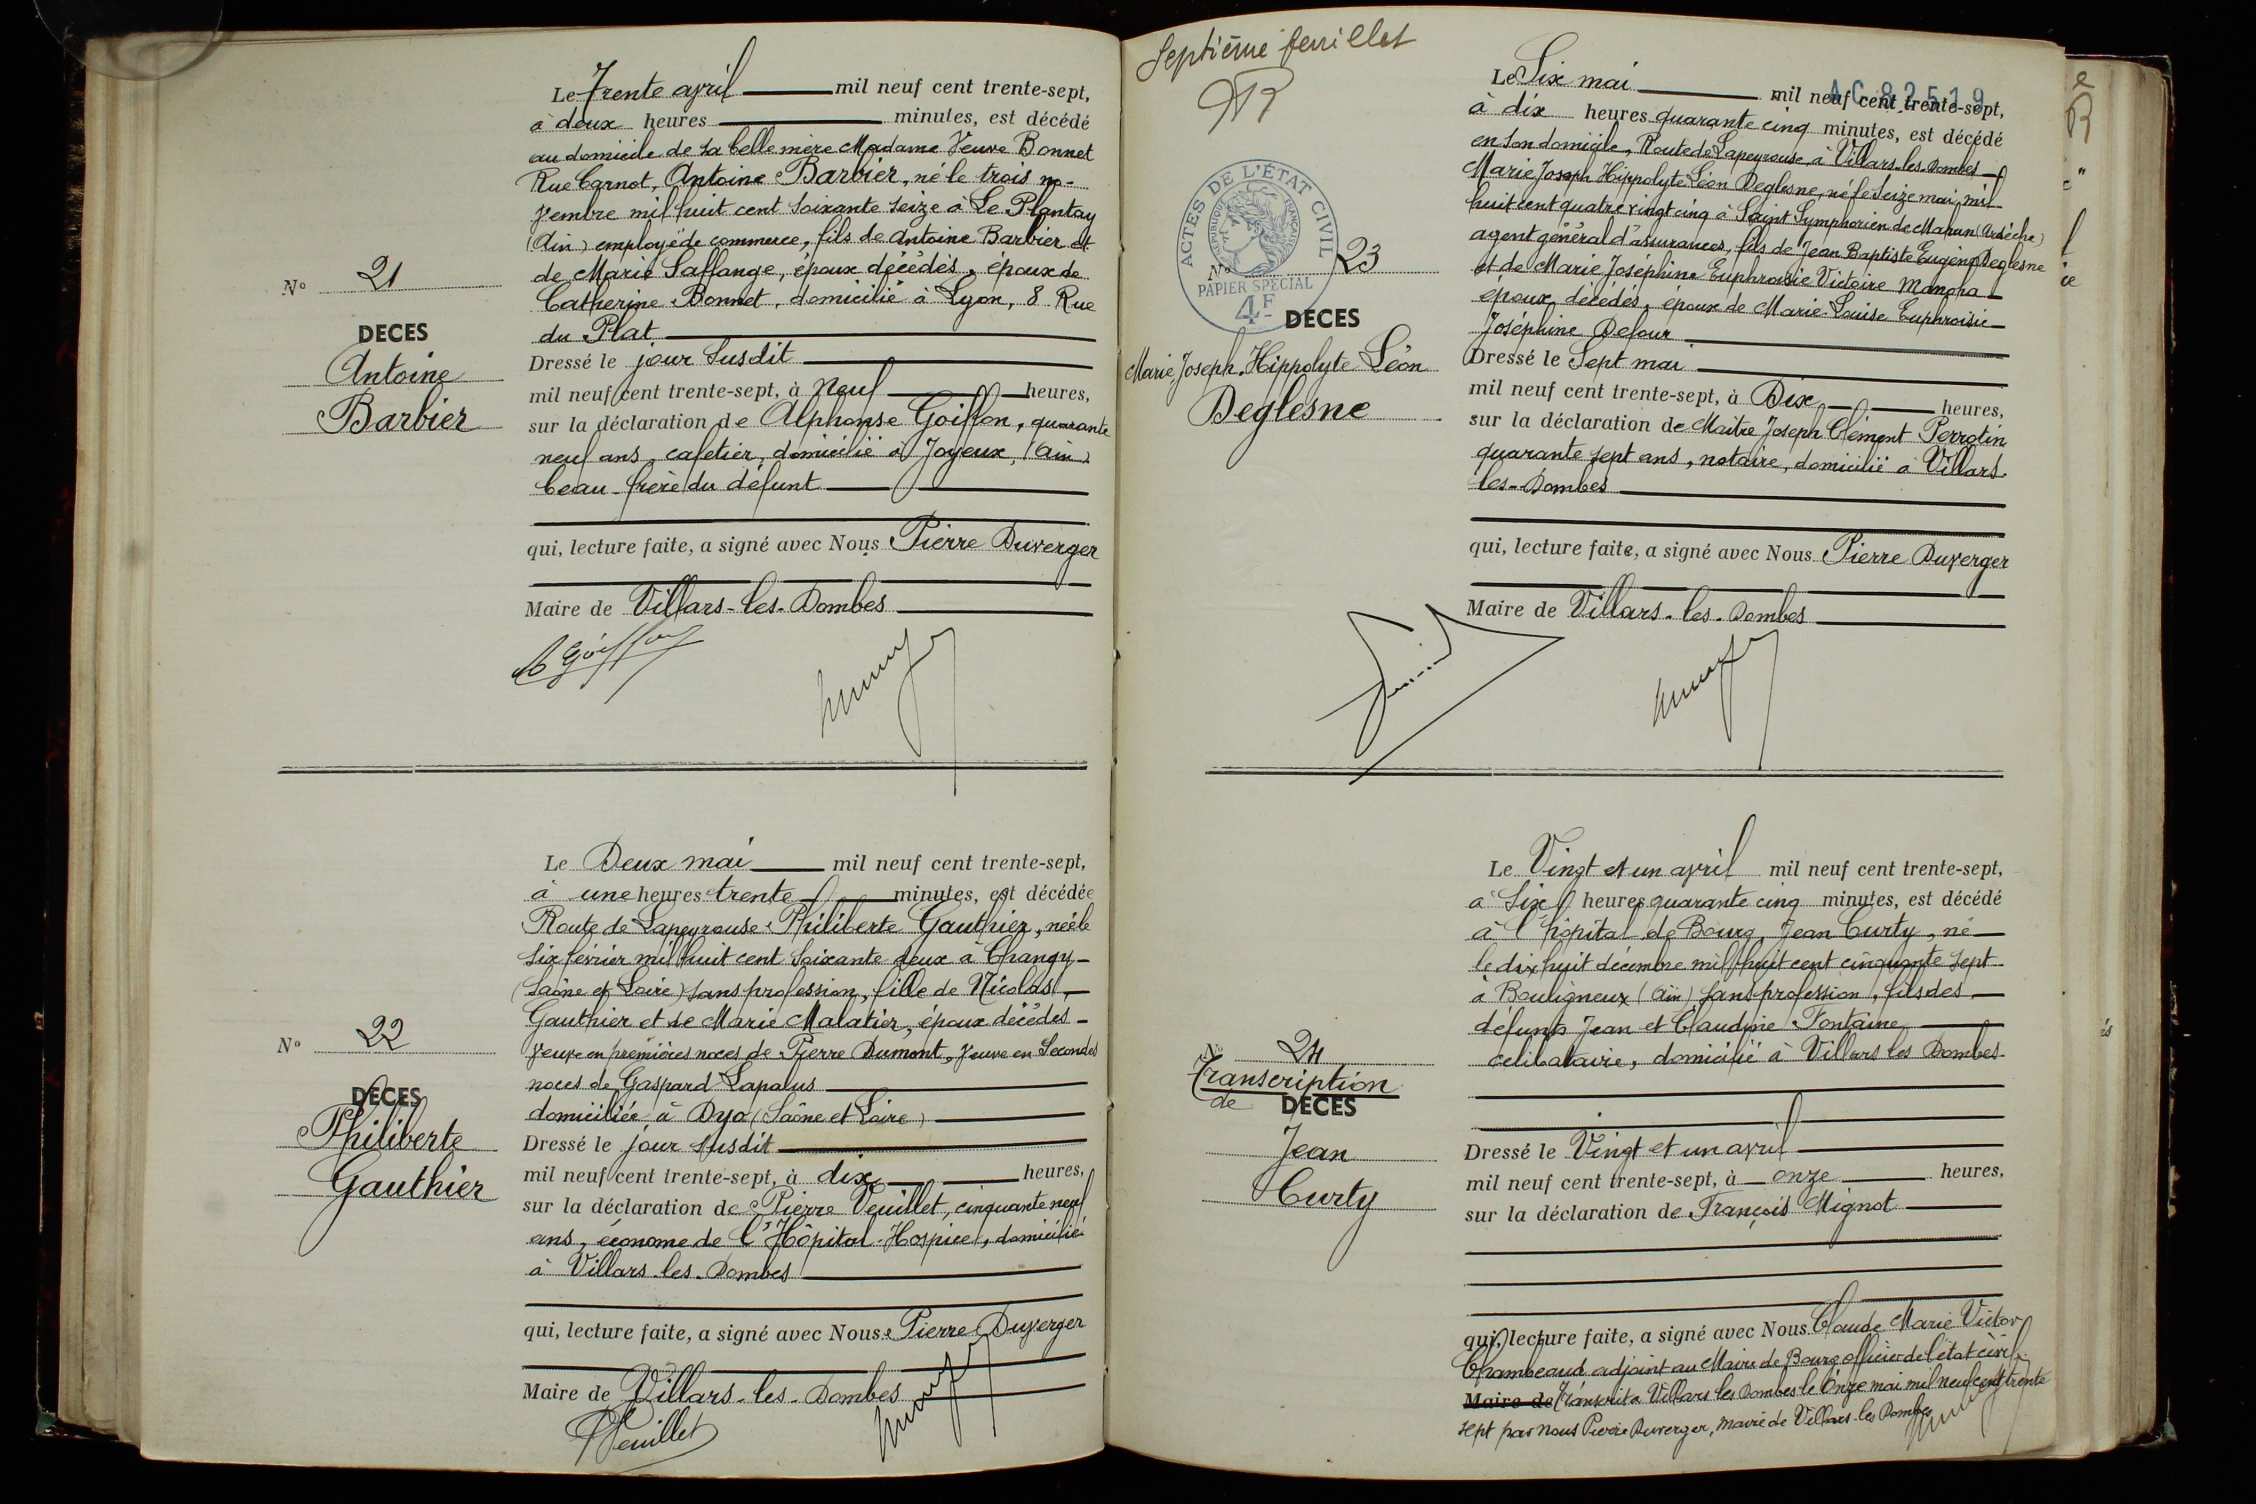 Le Trente avril mil neuf cent trente-sept,
à deux heures minutes, est décédé
au domicile de sa belle mère Madame Veuve Bonnet
Rue Carnot, Antoine Barbier, né le trois no-
vembre mil huit cent soixante seize à Le Plantay
(Ain) employé de commerce, fils de Antoine Barbier et
de Marie Saffange, époux décédés, époux de
Catherine Bonnet, domicilié à Lyon, 8 Rue
du Plat
No 21
DECES
Antoine
Barbier
Dressé le jour susdit
mil neuf cent trente-sept, à Neuf heures,
sur la déclaration de Alphonse Goiffon, quarante
neuf ans, cafetier, domicilié à Joyeux, (Ain)
beau-frère du défunt
qui, lecture faite, a signé avec Nous Pierre Duverger
Maire de Villars-les-Dombes
A Goiffon
Le Deux mai mil neuf cent trente-sept,
à une heures trente minutes, est décédée
Route de Lapeyrouse Philiberte Gauthier, née le
six février mil huit cent soixante deux à Changy
(Saône et Loire) sans profession, fille de Nicolas
Gauthier et de Marie Malatier, époux décédés
veuve en premières noces de Pierre Dumont, veuve en secondes
noces de Gaspard Lapalus
domiciliée à Dyo (Saône et Loire)
No 22
DECES
Philiberte
Gauthier
Dressé le jour susdit
mil neuf cent trente-sept, à dix heures,
sur la déclaration de Pierre Veuillet, cinquante neuf
ans, économe de l'Hôpital-Hospice, domicilié
à Villars-les-Dombes
qui, lecture faite, a signé avec Nous Pierre Duverger
Maire de Villars-les-Dombes
PVeuillet
Septième feuillet
ACTES DE L'ÉTAT CIVIL
RÉPUBLIQUE FRANÇAISE
PAPIER SPÉCIAL
4F
AC 82519
Le Six mai mil neuf cent trente-sept,
à dix heures quarante cinq minutes, est décédé
en son domicile, Route de Lapeyrouse, à Villars-les-Dombes
Marie Joseph Hippolyte Léon Deglesne, né le seize mai mil
huit cent quatre vingt cinq à Saint Symphorien de Mahun (Ardèche)
agent général d'assurances, fils de Jean Baptiste Eugène Deglesne
et de Marie Joséphine Euphroisie Victoire Mancha
époux décédés, époux de Marie Louise Euphroisie
Joséphine Defour
No 23
DECES
Marie Joseph Hippolyte Léon
Deglesne
Dressé le Sept mai
mil neuf cent trente-sept, à Dix heures,
sur la déclaration de Maître Joseph Clément Perrotin
quarante sept ans, notaire, domicilié à Villars
les-Dombes
qui, lecture faite, a signé avec Nous Pierre Duverger
Maire de Villars-les-Dombes
Le Vingt et un avril mil neuf cent trente-sept,
à Six heures quarante cinq minutes, est décédé
à l'hôpital de Bourg, Jean Curty, né
le dix huit décembre mil huit cent cinquante sept
à Bouligneux (Ain) sans profession, fils des
défunts Jean et Claudine Fontaine
célibataire, domicilié à Villars les Dombes
No 24
Transcription
de DECES
Jean
Curty
Dressé le Vingt et un avril
mil neuf cent trente-sept, à onze heures,
sur la déclaration de François Mignot
qui, lecture faite, a signé avec Nous Claude Marie Victor
Chambeaud adjoint au Maire de Bourg officier de l'état civil.
Maire de Transcrit à Villars les Dombes le Onze mai mil neuf cent trente
sept par nous Pierre Duverger, maire de Villars les Dombes